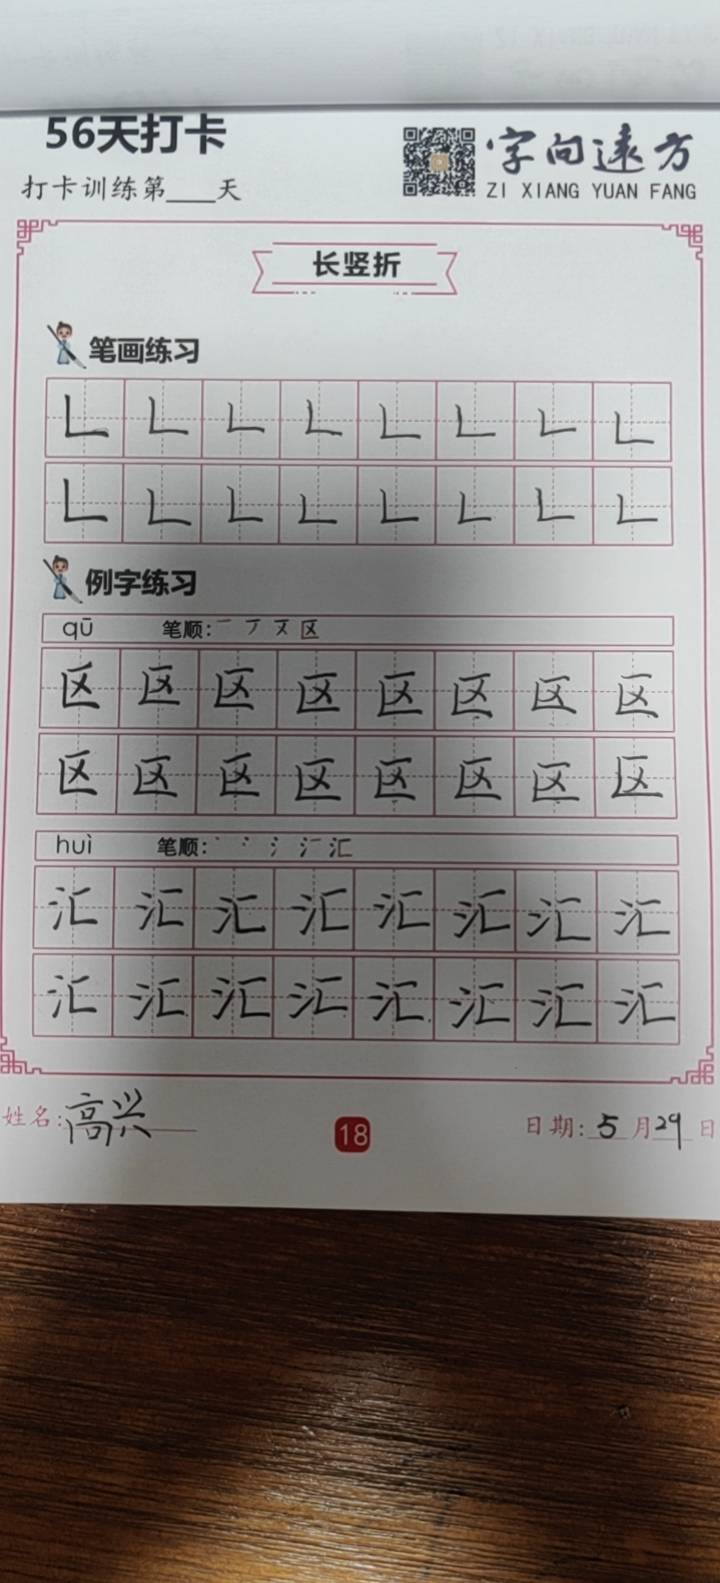 56天打卡
字向远方
打卡训练第___天
ZI XIANG YUAN FANG
长竖折
笔画练习
𠃊 𠃊 𠃊 𠃊 𠃊 𠃊 𠃊 𠃊
𠃊 𠃊 𠃊 𠃊 𠃊 𠃊 𠃊 𠃊
例字练习
qū 笔顺: 一 丆 区
区 区 区 区 区 区 区 区
区 区 区 区 区 区 区 区
huì 笔顺: 丶 冫 氵 汇
汇 汇 汇 汇 汇 汇 汇 汇
汇 汇 汇 汇 汇 汇 汇 汇
姓名: 高兴
18
日期: 5 月 29 日